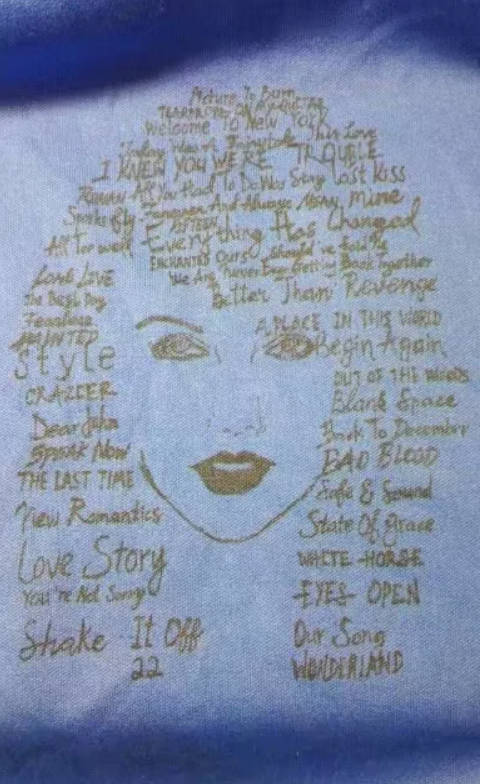 Picture To Burn
TEARDROPS ON MY GUITAR
Welcome To New York
Today Was A Fairytale This Love
I KNEW YOU WERE TROUBLE
All You Had To Do Was Stay Last Kiss
RONAN Forever And Always Mary
mine
Sparks Fly FIFTEEN
Everything Has Changed
All Too Well
ENCHANTED Ours Should've Said No
We Are Never Ever Getting Back Together
Better Than Revenge
Long LOVE
The Best Day
Fearless
HAUNTED
Style
CRAZIER
Dear John
Speak Now
THE LAST TIME
New Romantics
Love Story
You're Not Sorry
Shake It Off
22
A PLACE IN THIS WORLD
Begin Again
OUT OF THE WOODS
Blank Space
Back To December
BAD BLOOD
Safe & Sound
State Of Grace
WHITE HORSE
EYES OPEN
Our Song
WONDERLAND